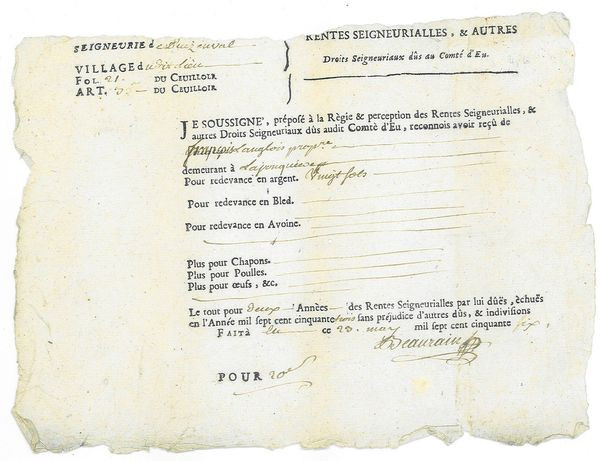 SEIGNEURIE de
VILLAGE du
FOL. 21. DU CEUILLOIR
ART. 3. DU CEUILLOIR
RENTES SEIGNEURIALLES, & AUTRES
Droits Seigneuriaux dûs au Comté d'Eu.
JE SOUSSIGNÉ, préposé à la Règie & perception des Rentes Seigneurialles, &
autres Droits Seigneuriaux dûs audit Comté d'Eu, reconnois avoir reçu de
françois Langlois propre
demeurant à
Pour redevance en argent. Vingt sols
Pour redevance en Bled.
Pour redevance en Avoine.
Plus pour Chapons.
Plus pour Poulles.
Plus pour œufs, &c.
Le tout pour deux Années des Rentes Seigneurialles par lui dûës, échuës
en l'Année mil sept cent cinquante trois sans préjudice d'autres dûs, & indivisions
FAIT à Eu ce 23. may mil sept cent cinquante six.
Beaurain
POUR 20s